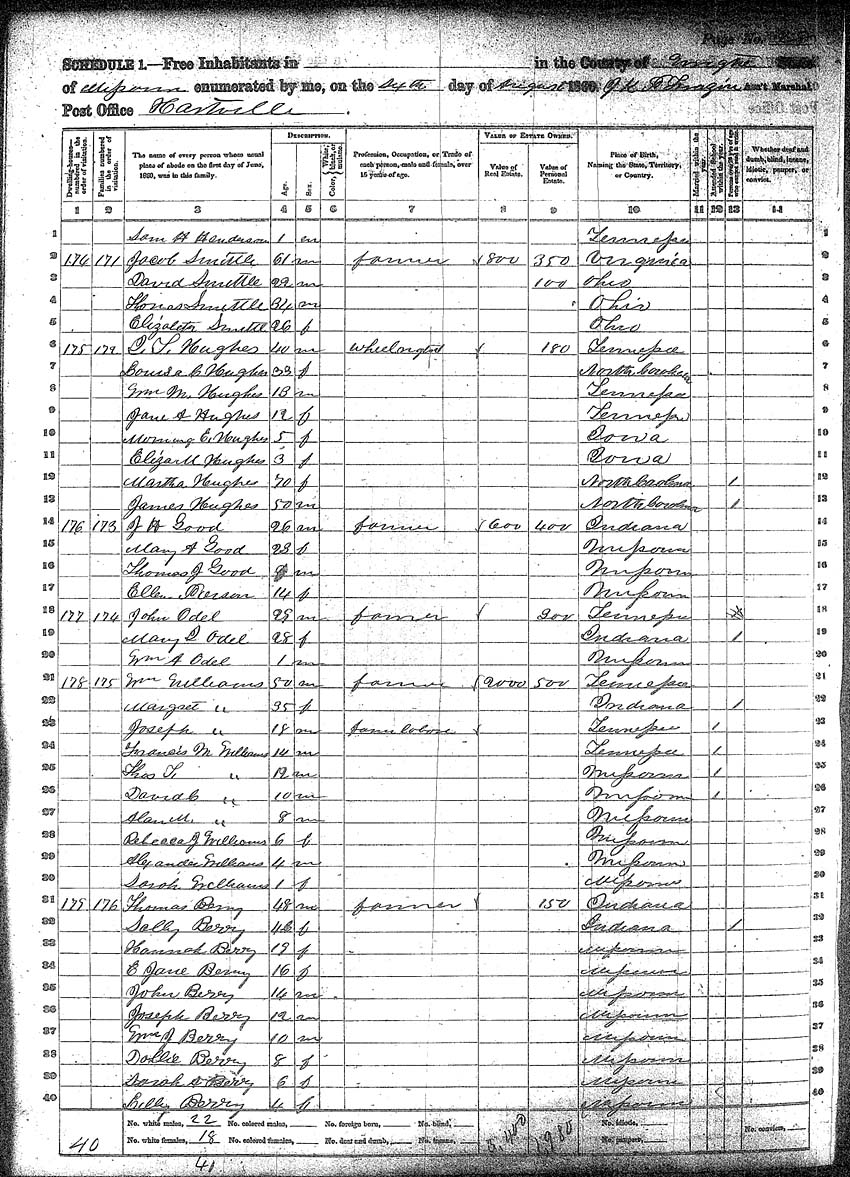 Page No.
SCHEDULE 1.—Free Inhabitants in in the County of State
of Missouri enumerated by me, on the Sixth day of August 1860. Ass't Marshal.
Post Office Hartville.
Dwelling-houses—numbered in the order of visitation.
Families numbered in the order of visitation.
The name of every person whose usual place of abode on the first day of June, 1860, was in this family.
DESCRIPTION.
Age.
Sex.
Color, White, black, or mulatto.
Profession, Occupation, or Trade of each person, male and female, over 15 years of age.
VALUE OF ESTATE OWNED.
Value of Real Estate.
Value of Personal Estate.
Place of Birth, Naming the State, Territory, or Country.
Married within the year.
Attended School within the year.
Persons over 20 y'rs of age who cannot read & write.
Whether deaf and dumb, blind, insane, idiotic, pauper, or convict.
1 2 3 4 5 6 7 8 9 10 11 12 13 14
1 Sam H Henderson 1 m Tennessee 1
2 174 171 Jacob Smittle 61 m farmer 800 350 Virginia 2
3 David Smittle 22 m 100 Ohio 3
4 Thomas Smittle 34 m Ohio 4
5 Elizabeth Smittl 26 f Ohio 5
6 175 172 Hughes 40 m Wheelwright 180 Tennessee 6
7 Louisa C Hughes 33 f North Carolina 7
8 Wm M. Hughes 13 m Tennessee 8
9 Jane A Hughes 12 f Tennessee 9
10 Morning E. Hughes 5 f Iowa 10
11 Eliza M Hughes 3 f Iowa 11
12 Martha Hughes 70 f North Carolina 1 12
13 James Hughes 50 m North Carolina 1 13
14 176 173 J H Good 26 m farmer 600 400 Indiana 14
15 Mary A Good 23 f Missouri 15
16 Thomas J Good m Missouri 16
17 Ellen Pierson 14 f Missouri 17
18 177 174 John Odel 29 m farmer 200 Tennessee 18
19 Mary Odel 28 f Indiana 1 19
20 Wm A Odel 1 m Missouri 20
21 178 175 Wm Williams 50 m farmer 2000 500 Tennessee 21
22 Margret " 35 f Indiana 1 22
23 Joseph " 18 m farm labore Tennessee 1 23
24 Francis M Williams 14 m Tennessee 1 24
25 Thos " 12 m Missouri 1 25
26 David C " 10 m Missouri 1 26
27 Alan M. " 8 m Missouri 27
28 Rebecca J Williams 6 f Missouri 28
29 Alexander Williams 4 m Missouri 29
30 Sarah Williams 1 f Missouri 30
31 179 176 Thomas Berry 48 m farmer 150 Indiana 31
32 Sally Berry 46 f Indiana 1 32
33 Hannah Berry 19 f Missouri 33
34 E Jane Berry 16 f Missouri 34
35 John Berry 14 m Missouri 35
36 Joseph Berry 12 m Missouri 36
37 Wm J Berry 10 m Missouri 37
38 Dollie Berry 8 f Missouri 38
39 Sarah Berry 6 f Missouri 39
40 Berry 4 f Missouri 40
No. white males, 22 No. colored males, No. foreign born, No. blind, No. idiotic, No. convicts,
40 No. white females, 18 No. colored females, No. deaf and dumb, No. insane, No. paupers,
41